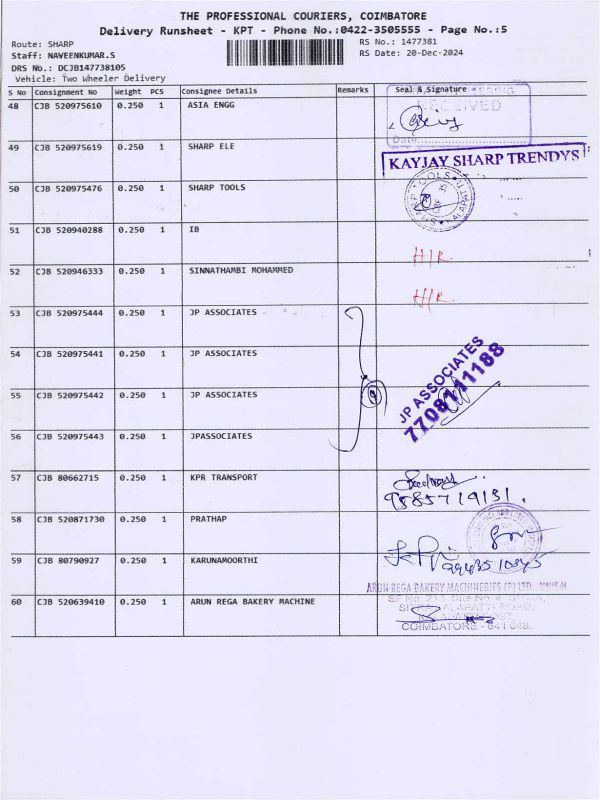 THE PROFESSIONAL COURIERS, COIMBATORE
Delivery Runsheet - KPT - Phone No.:0422-3505555 - Page No.:5
Route: SHARP
RS No.: 1477381
Staff: NAVEENKUMAR.S
RS Date: 20-Dec-2024
DRS No.: DCJB147738105
Vehicle: Two Wheeler Delivery
S No Consignment No Weight PCS Consignee Details Remarks Seal & Signature
48 CJB 520975610 0.250 1 ASIA ENGG
RECEIVED
Date
49 CJB 520975619 0.250 1 SHARP ELE
KAYJAY SHARP TRENDYS
50 CJB 520975476 0.250 1 SHARP TOOLS
51 CJB 520940288 0.250 1 IB
H/R.
52 CJB 520946333 0.250 1 SINNATHAMBI MOHAMMED
H/R.
53 CJB 520975444 0.250 1 JP ASSOCIATES
54 CJB 520975441 0.250 1 JP ASSOCIATES
JP ASSOCIATES
7708111188
55 CJB 520975442 0.250 1 JP ASSOCIATES
56 CJB 520975443 0.250 1 JPASSOCIATES
57 CJB 80662715 0.250 1 KPR TRANSPORT
9585719131.
58 CJB 520871730 0.250 1 PRATHAP
59 CJB 80790927 0.250 1 KARUNAMOORTHI
ARUN REGA BAKERY MACHINERIES (P) LTD.
60 CJB 520639410 0.250 1 ARUN REGA BAKERY MACHINE
COIMBATORE - 641 048.